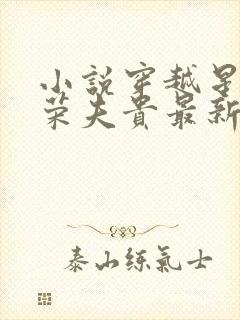 小說穿越星
荣夫貴最新
泰山练氣士